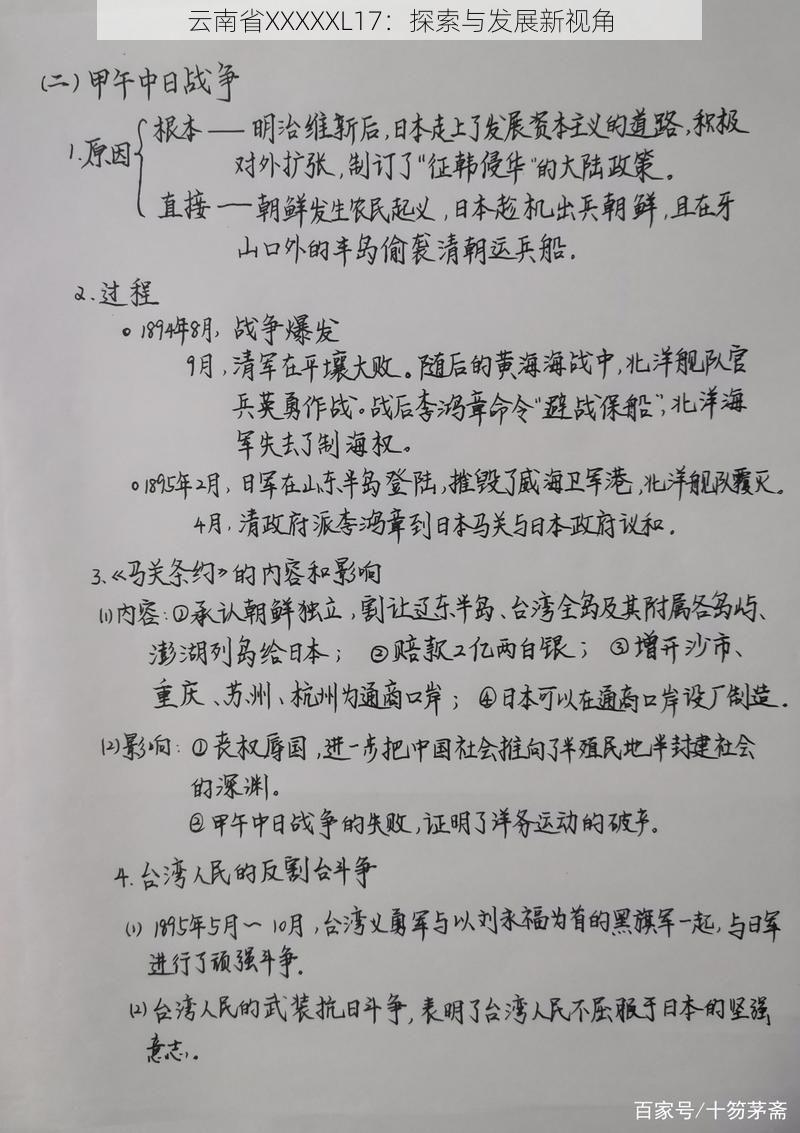 云南省XXXXXL17：探索与发展新视角
(二)甲午中日战争
1.原因
根本——明治维新后,日本走上了发展资本主义的道路,积极
对外扩张,制订了“征韩侵华”的大陆政策。
直接——朝鲜发生农民起义,日本趁机出兵朝鲜,且在牙
山口外的丰岛偷袭清朝运兵船。
2.过程
○1894年8月,战争爆发
9月,清军在平壤大败。随后的黄海海战中,北洋舰队官
兵英勇作战。战后李鸿章命令“避战保船”,北洋海
军失去了制海权。
○1895年2月,日军在山东半岛登陆,摧毁了威海卫军港,北洋舰队覆灭。
4月,清政府派李鸿章到日本马关与日本政府议和。
3.《马关条约》的内容和影响
(1)内容:①承认朝鲜独立,割让辽东半岛、台湾全岛及其附属各岛屿、
澎湖列岛给日本;②赔款2亿两白银;③增开沙市、
重庆、苏州、杭州为通商口岸;④日本可以在通商口岸设厂制造。
(2)影响:①丧权辱国,进一步把中国社会推向了半殖民地半封建社会
的深渊。
②甲午中日战争的失败,证明了洋务运动的破产。
4.台湾人民的反割台斗争
(1)1895年5月~10月,台湾义勇军与以刘永福为首的黑旗军一起,与日军
进行了顽强斗争。
(2)台湾人民的武装抗日斗争,表明了台湾人民不屈服于日本的坚强
意志。
百家号/十笏茅斋